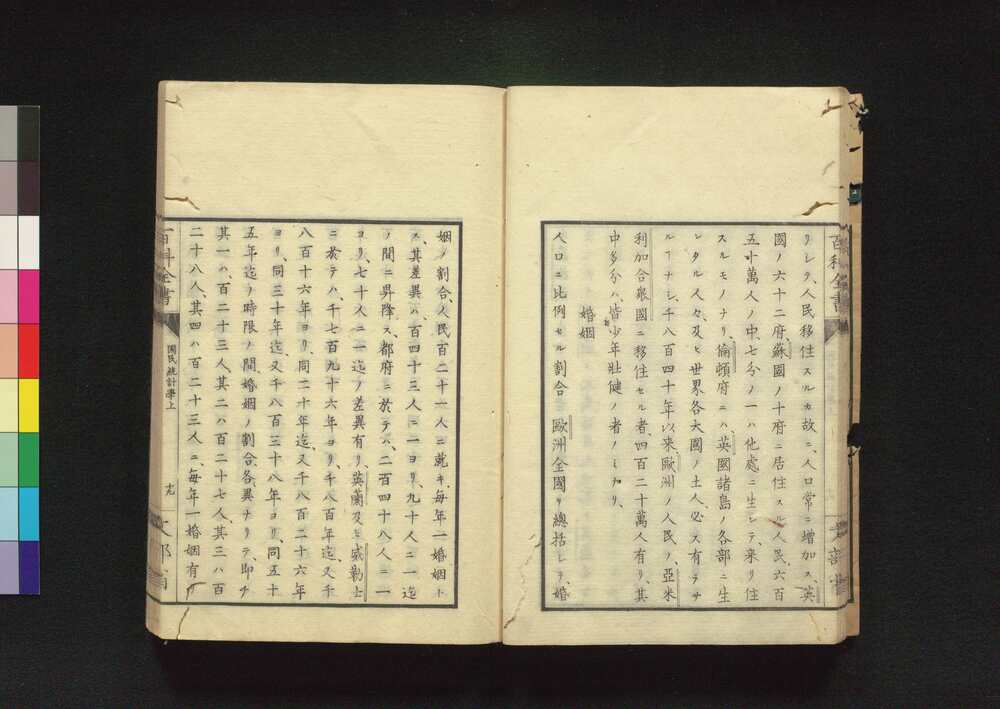 リシテ、人民移住スルカ故ニ、人口常ニ増加ス、英
國ノ六十二府、蘇國ノ十府ニ居住スル人民、六百
五十萬人ノ中、七分ノ一ハ他處ニ生シテ、来リ住
スルモノナリ、倫頓府ニハ、英國諸島ノ各部ニ生
レタル人々、及ヒ世界各大國ノ土人、必ス有ラサ
ルヿナシ、千八百四十年以来、歐洲ノ人民ノ、亞米
利加合衆國ニ移住セル者、四百二十萬人有リ、其
中多分ハ、皆少年壮健ノ者ノミナリ、
婚姻
人口ニ比例セル割合ニ、歐洲全國ヲ總括シテ、婚
百科全書
姻ノ割合ハ、人民百二十一人ニ就キ、毎年一婚姻ト
ス、其差異ハ、百四十三人ニ一ヨリ、九十人ニ一迄
ノ間ニ昇降ス、都府ニ於テハ、二百四十八人ニ一
ヨリ、七十人ニ一迄ノ差異有リ、英蘭及ヒ威勒士
ニ於テハ、千七百九十六年ヨリ、千八百年迄、又千
八百十六年ヨリ、同二十年迄、又千八百二十六年
ヨリ、同三十年迄、又千八百三十八年ヨリ、同五十
五年迄ノ時限ノ間、婚姻ノ割合、各異ナリテ、即チ
其一ハ、百二十三人、其二ハ百二十七人、其三ハ百
二十八人、其四ハ百二十三人ニ、毎年一婚姻有リ
百科全書
國民統計學上
十九
文部省